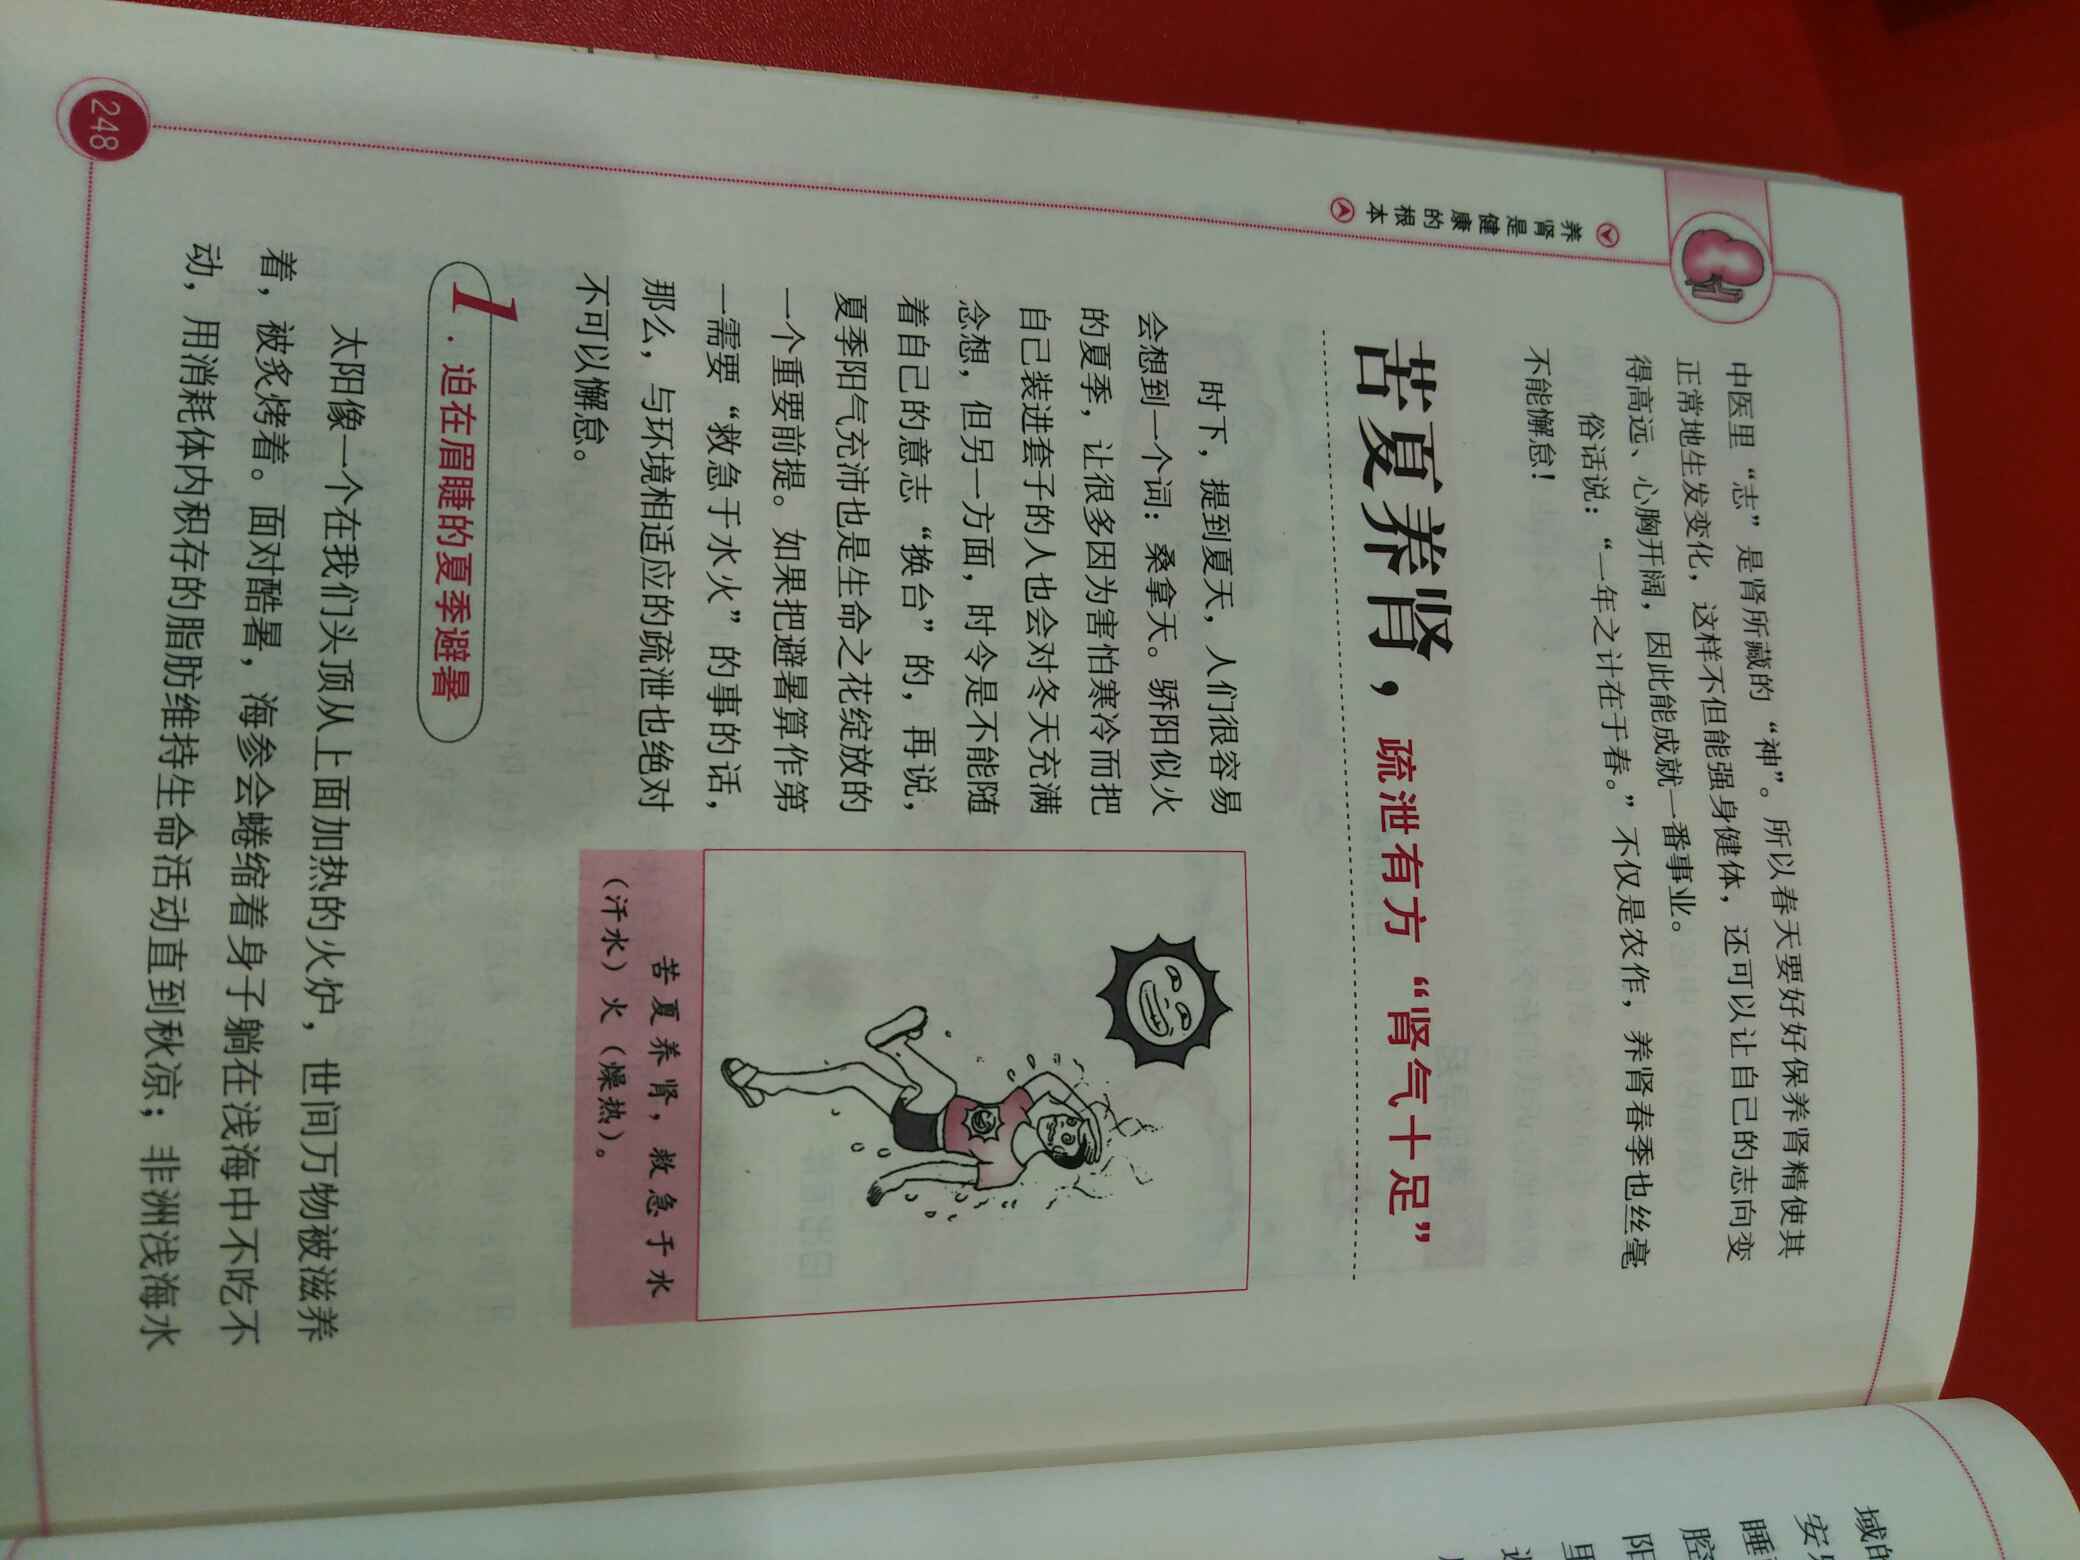 养肾是健康的根本
中医里“志”是肾所藏的“神”。所以春天要好好保养肾精使其
正常地生发变化，这样不但能强身健体，还可以让自己的志向变
得高远、心胸开阔，因此能成就一番事业。
俗话说：“一年之计在于春。”不仅是农作，养肾春季也丝毫
不能懈怠！
苦夏养肾，疏泄有方“肾气十足”
时下，提到夏天，人们很容易
会想到一个词：桑拿天。骄阳似火
的夏季，让很多因为害怕寒冷而把
自己装进套子的人也会对冬天充满
念想，但另一方面，时令是不能随
着自己的意志“换台”的，再说，
夏季阳气充沛也是生命之花绽放的
一个重要前提。如果把避暑算作第
一需要“救急于水火”的事的话，
那么，与环境相适应的疏泄也绝对
不可以懈怠。
苦夏养肾，救急于水
（汗水）火（燥热）。
1.迫在眉睫的夏季避暑
太阳像一个在我们头顶从上面加热的火炉，世间万物被滋养
着，被炙烤着。面对酷暑，海参会蜷缩着身子躺在浅海中不吃不
动，用消耗体内积存的脂肪维持生命活动直到秋凉；非洲浅海水
248
域的
安
睡
腔
阳
里